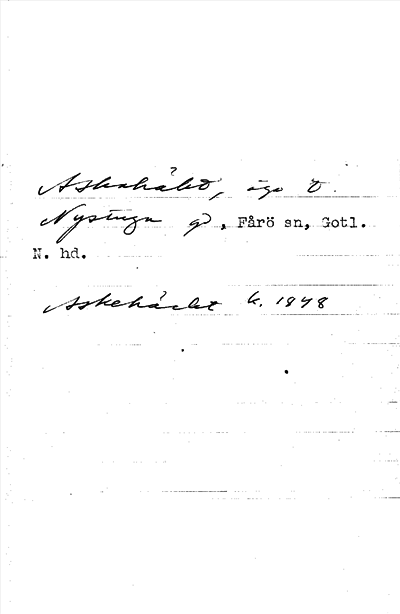 Askahålet, ägo t.
Nystuga gd, Fårö sn, Gotl.
N. hd.
Askehålet k. 1878